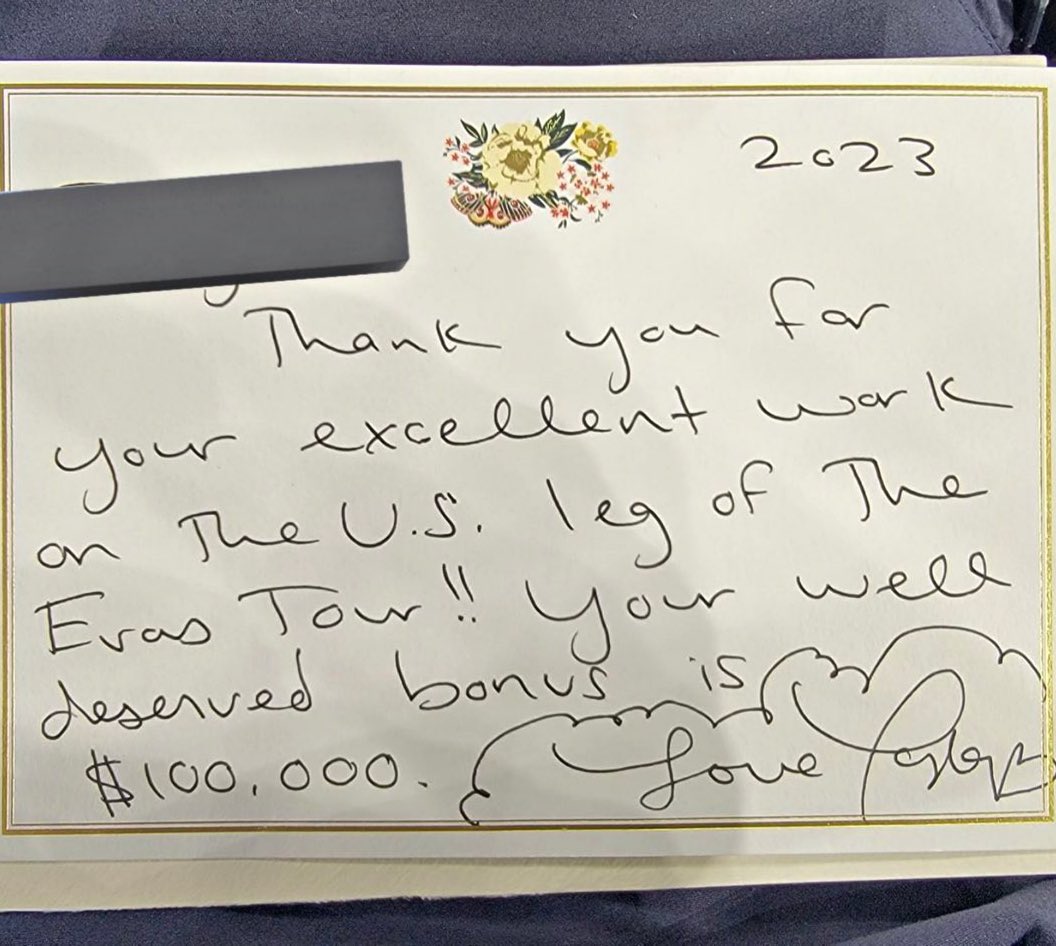 2023
Thank you for
your excellent work
on The U.S. leg of The
Eras Tour!! Your well
deserved bonus is
$100,000. Love